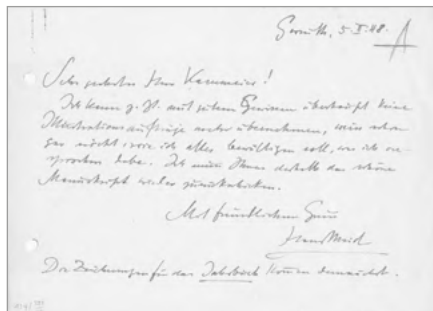 5. X. 48.
Sehr geehrter Herr Kammeier!
Ich kann z. Zt. mit gutem Gewissen überhaupt keine
Illustrationsaufträge weiter übernehmen, weiß schon
gar nicht, wie ich alles bewältigen soll, was ich ver-
sprochen habe. Ich muß Ihnen deshalb das schöne
Manuskript wieder zurückschicken.
Mit freundlichem Gruß
Hans Meid
Die Zeichnungen für das Jahrbuch kommen demnächst.